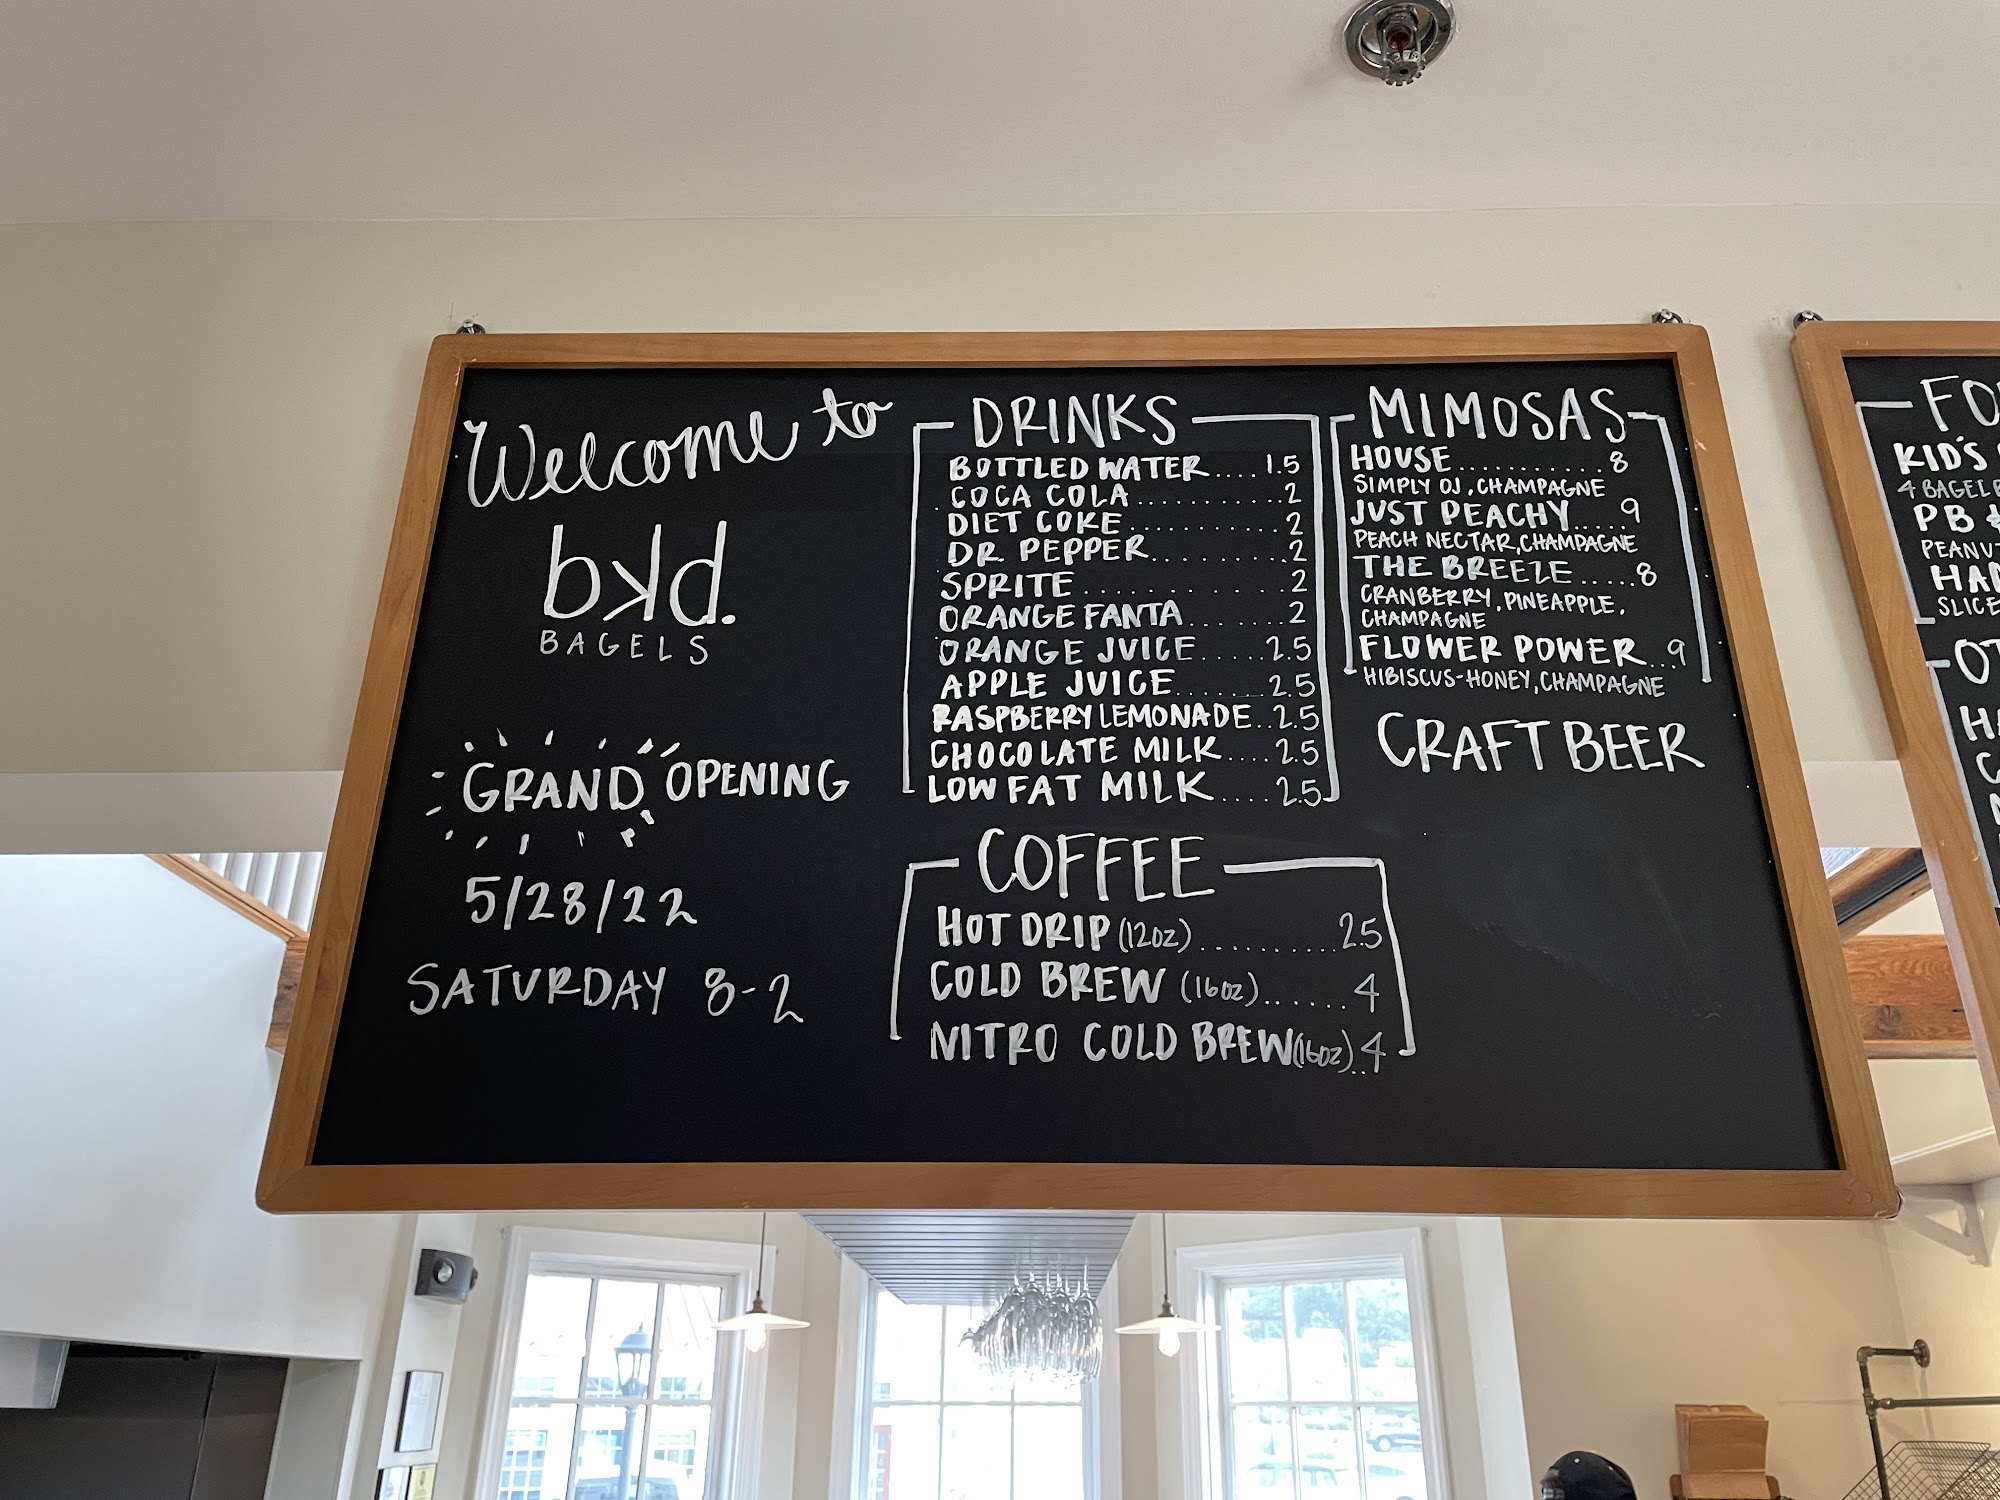 Welcome to
bkd.
BAGELS
GRAND OPENING
5/28/22
SATURDAY 8-2
DRINKS
BOTTLED WATER....1.5
COCA COLA............2
DIET COKE............2
DR. PEPPER.........2
SPRITE............2
ORANGE FANTA.......2
ORANGE JUICE.....2.5
APPLE JUICE.......2.5
RASPBERRY LEMONADE..2.5
CHOCOLATE MILK....2.5
LOW FAT MILK....2.5
COFFEE
HOT DRIP (12oz)..........2.5
COLD BREW (16oz)......4
NITRO COLD BREW (16oz)..4
MIMOSAS
HOUSE...........8
SIMPLY OJ, CHAMPAGNE
JUST PEACHY.....9
PEACH NECTAR, CHAMPAGNE
THE BREEZE.....8
CRANBERRY, PINEAPPLE,
CHAMPAGNE
FLOWER POWER...9
HIBISCUS-HONEY, CHAMPAGNE
CRAFT BEER
KID'S
4
PB &